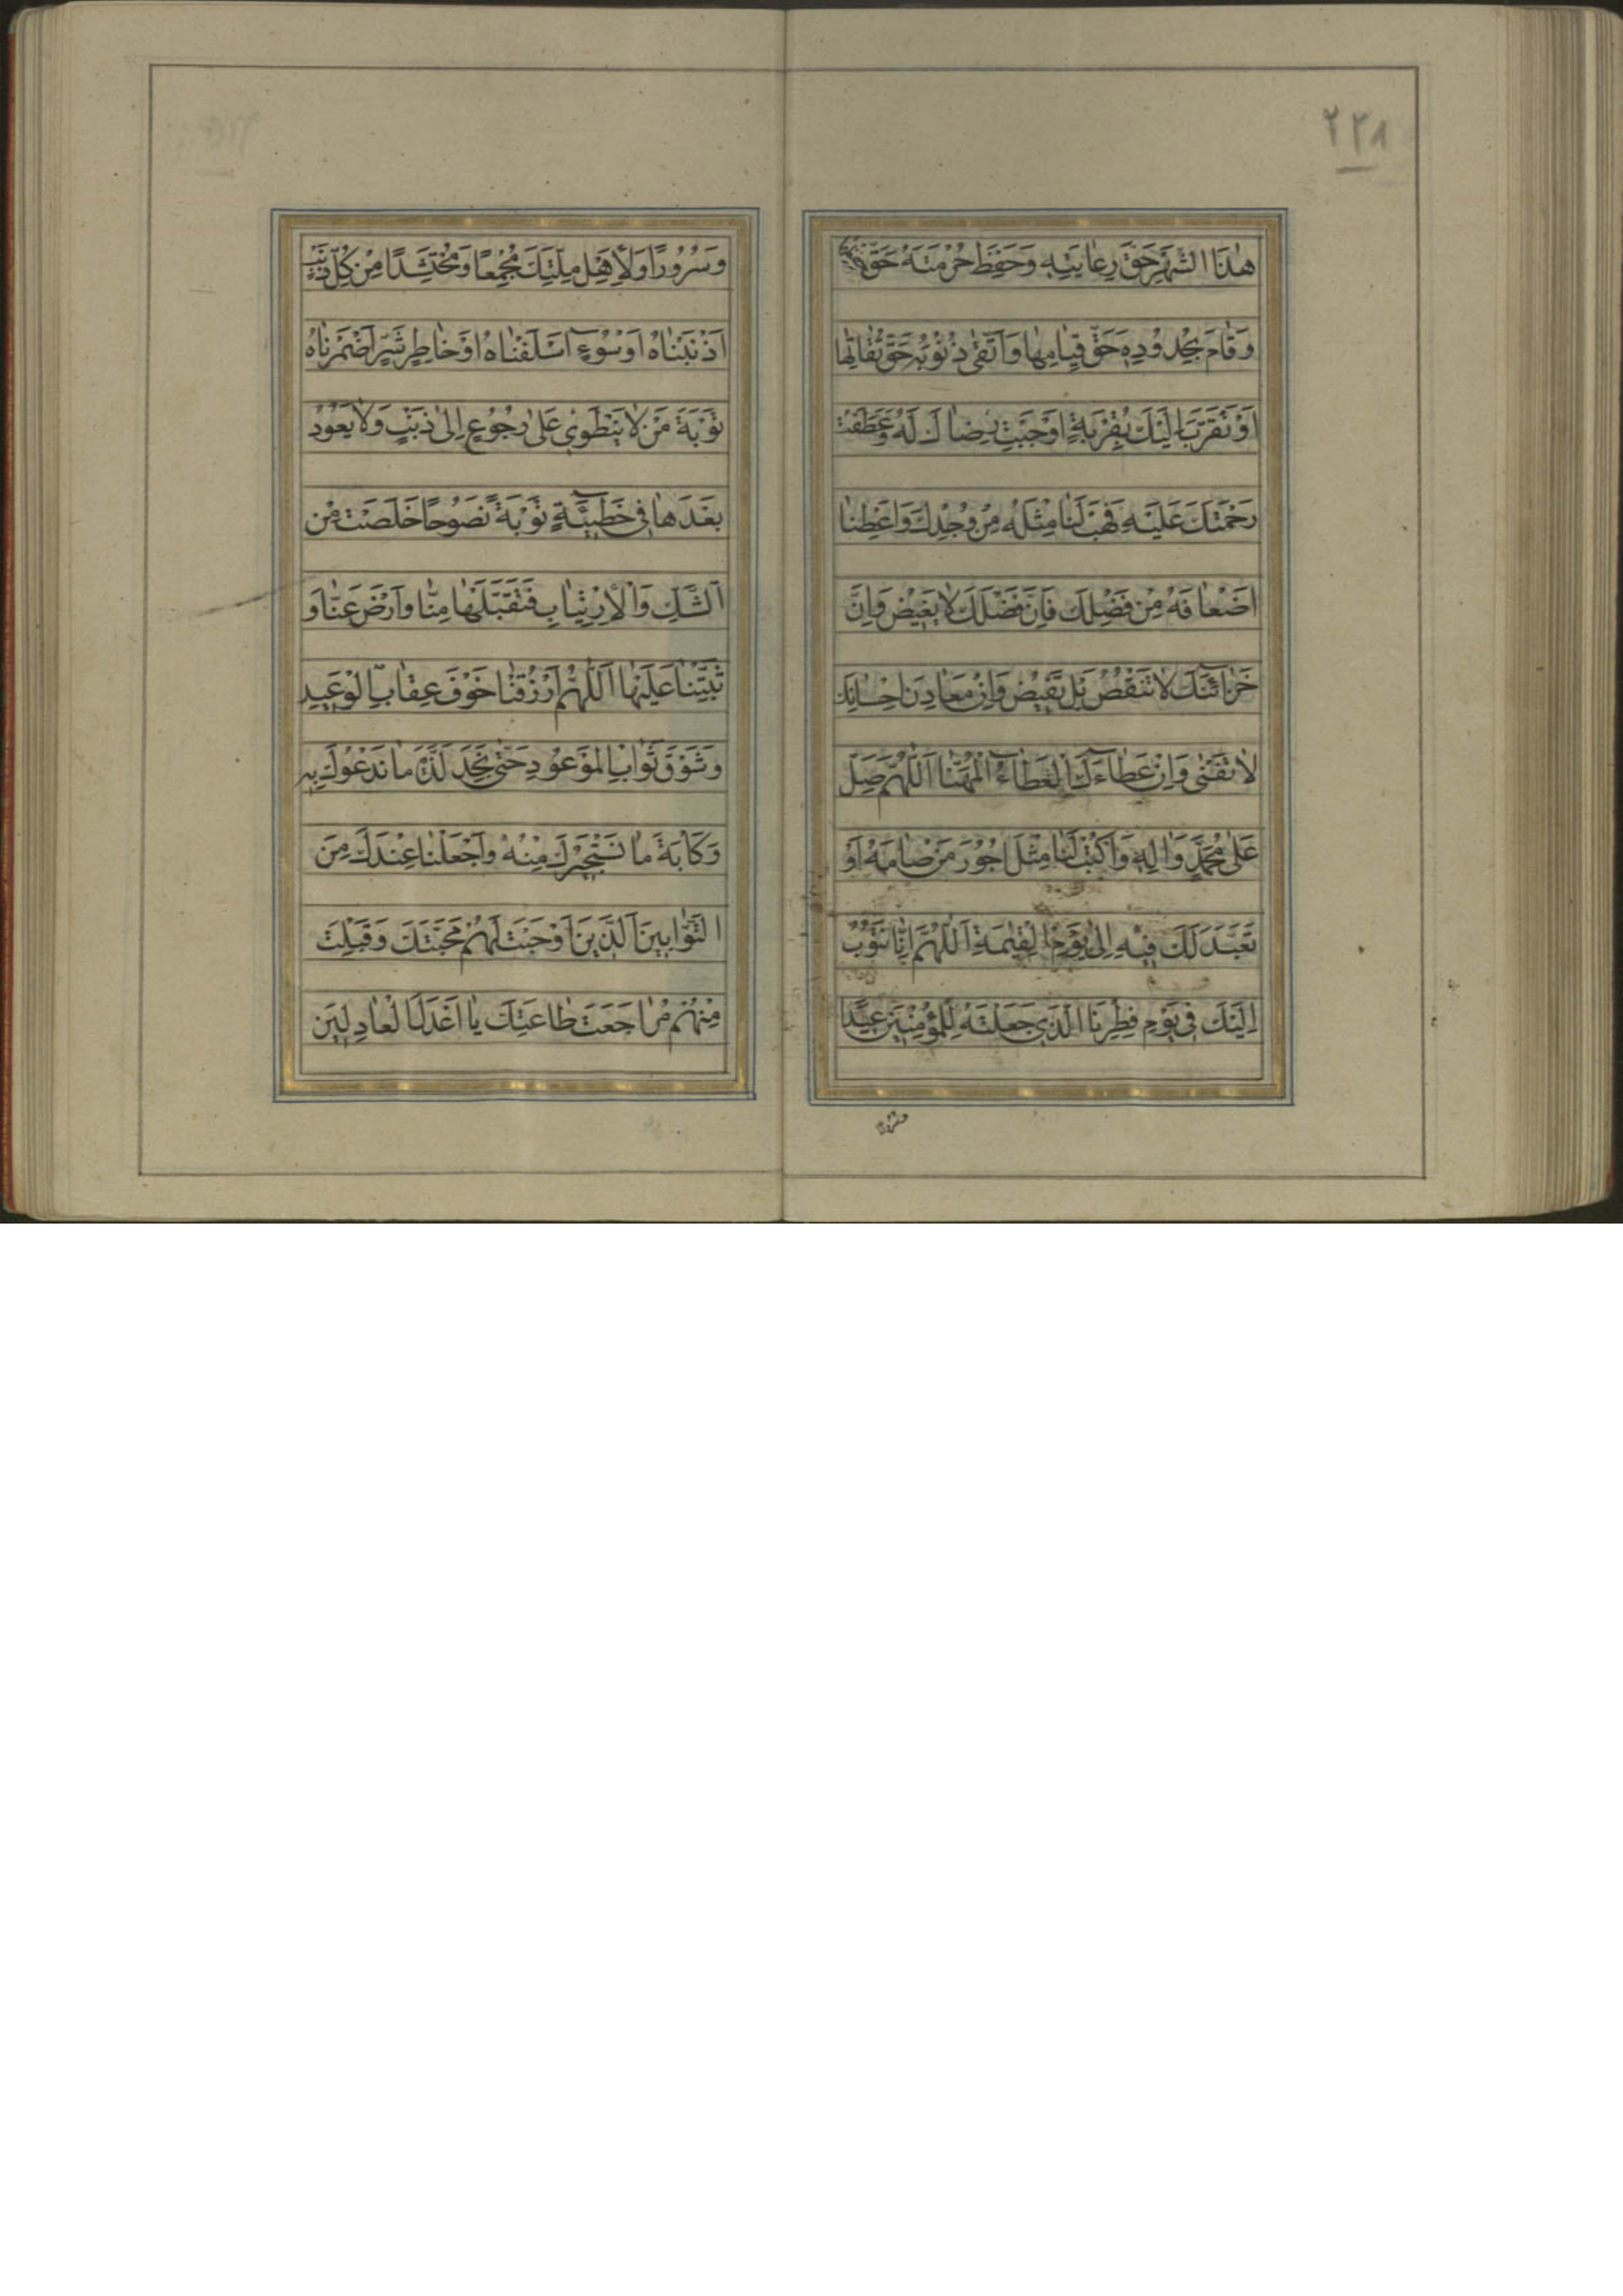 ٢٢٨
هٰذَا الشَّهْرَ حَقَّ رِعَايَتِهِ وَحَفِظَ حُرْمَتَهُ حَقَّ حِفْظِهَا
وَقَامَ بِحُدُودِهِ حَقَّ قِيَامِهَا وَاتَّقٰى ذُنُوبَهُ حَقَّ تُقَاتِهَا
اَوْ تَقَرَّبَ اِلَيْكَ بِقُرْبَةٍ اَوْجَبَتْ رِضَاكَ لَهُ وَعَطَفَتْ
رَحْمَتَكَ عَلَيْهِ فَهَبْ لَنَا مِثْلَهُ مِنْ وُجْدِكَ وَاَعْطِنَا
اَضْعَافَهُ مِنْ فَضْلِكَ فَاِنَّ فَضْلَكَ لَا يَغِيضُ وَاِنَّ
خَزَائِنَكَ لَا تَنْقُصُ بَلْ تَفِيضُ وَاِنَّ مَعَادِنَ اِحْسَانِكَ
لَا تَفْنٰى وَاِنَّ عَطَاءَكَ الْعَطَاءُ الْمُهَنَّا اَللّٰهُمَّ صَلِّ
عَلٰى مُحَمَّدٍ وَاٰلِهِ وَاكْتُبْ لَنَا مِثْلَ اُجُورِ مَنْ صَامَهُ اَوْ
تَعَبَّدَ لَكَ فِيهِ اِلٰى يَوْمِ الْقِيٰمَةِ اَللّٰهُمَّ اِنَّا نَتُوبُ
اِلَيْكَ فِي يَوْمِ فِطْرِنَا الَّذِي جَعَلْتَهُ لِلْمُؤْمِنِينَ عِيدًا
وسرورا
وَسُرُورًا وَلِاَهْلِ مِلَّتِكَ مَجْمَعًا وَمُحْتَشَدًا مِنْ كُلِّ ذَنْبٍ
اَذْنَبْنَاهُ اَوْ سُوءٍ اَسْلَفْنَاهُ اَوْ خَاطِرِ شَرٍّ اَضْمَرْنَاهُ
تَوْبَةَ مَنْ لَا يَنْطَوِي عَلٰى رُجُوعٍ اِلٰى ذَنْبٍ وَلَا يَعُودُ
بَعْدَهَا فِي خَطِيئَةٍ تَوْبَةً نَصُوحًا خَلَصَتْ مِنَ
الشَّكِّ وَالْاِرْتِيَابِ فَتَقَبَّلْهَا مِنَّا وَارْضَ عَنَّا وَ
ثَبِّتْنَا عَلَيْهَا اَللّٰهُمَّ ارْزُقْنَا خَوْفَ عِقَابِ الْوَعِيدِ
وَشَوْقَ ثَوَابِ الْمَوْعُودِ حَتّٰى نَجِدَ لَذَّةَ مَا نَدْعُوكَ بِهِ
وَكَابَةَ مَا نَسْتَجِيرُكَ مِنْهُ وَاجْعَلْنَا عِنْدَكَ مِنَ
التَّوَّابِينَ الَّذِينَ اَوْجَبْتَ لَهُمْ مَحَبَّتَكَ وَقَبِلْتَ
مِنْهُمْ مُرَاجَعَةَ طَاعَتِكَ يَا اَعْدَلَ الْعَادِلِينَ